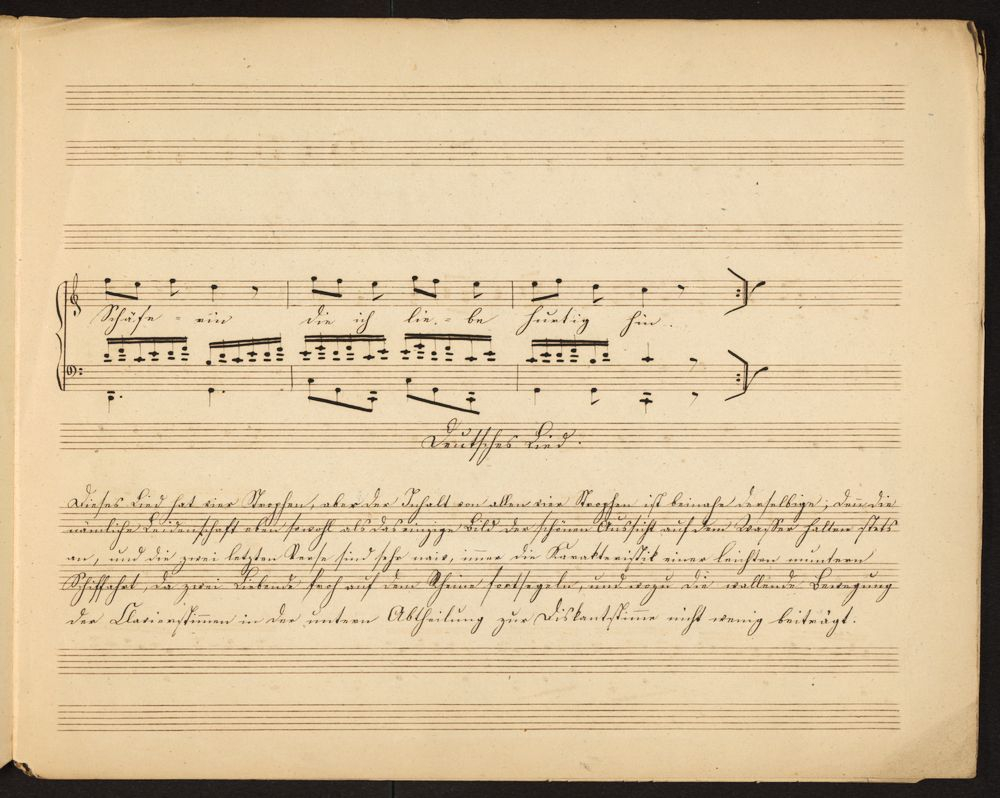 Schäfe = rin die ich lie = be hurtig hin.
Deutsches Lied.
Dieses Lied hat vier Strophen, aber der Inhalt von allen vier Strophen ist beinahe derselbige; denn die
nämliche Leidenschaft eben sowohl als das einzige Bild der schönen Aussicht auf dem Wasser halten stets
an, und die zwei letzten Verse sind sehr naiv, immer die Karakteristik einer leichten muntern
Schiffahrt, da zwei Liebende froh auf dem Rheine fortsegeln, und wozu die wallende Bewegung
der Clavierstimmen in der untern Abtheilung zur Diskantstimme nicht wenig beiträgt.